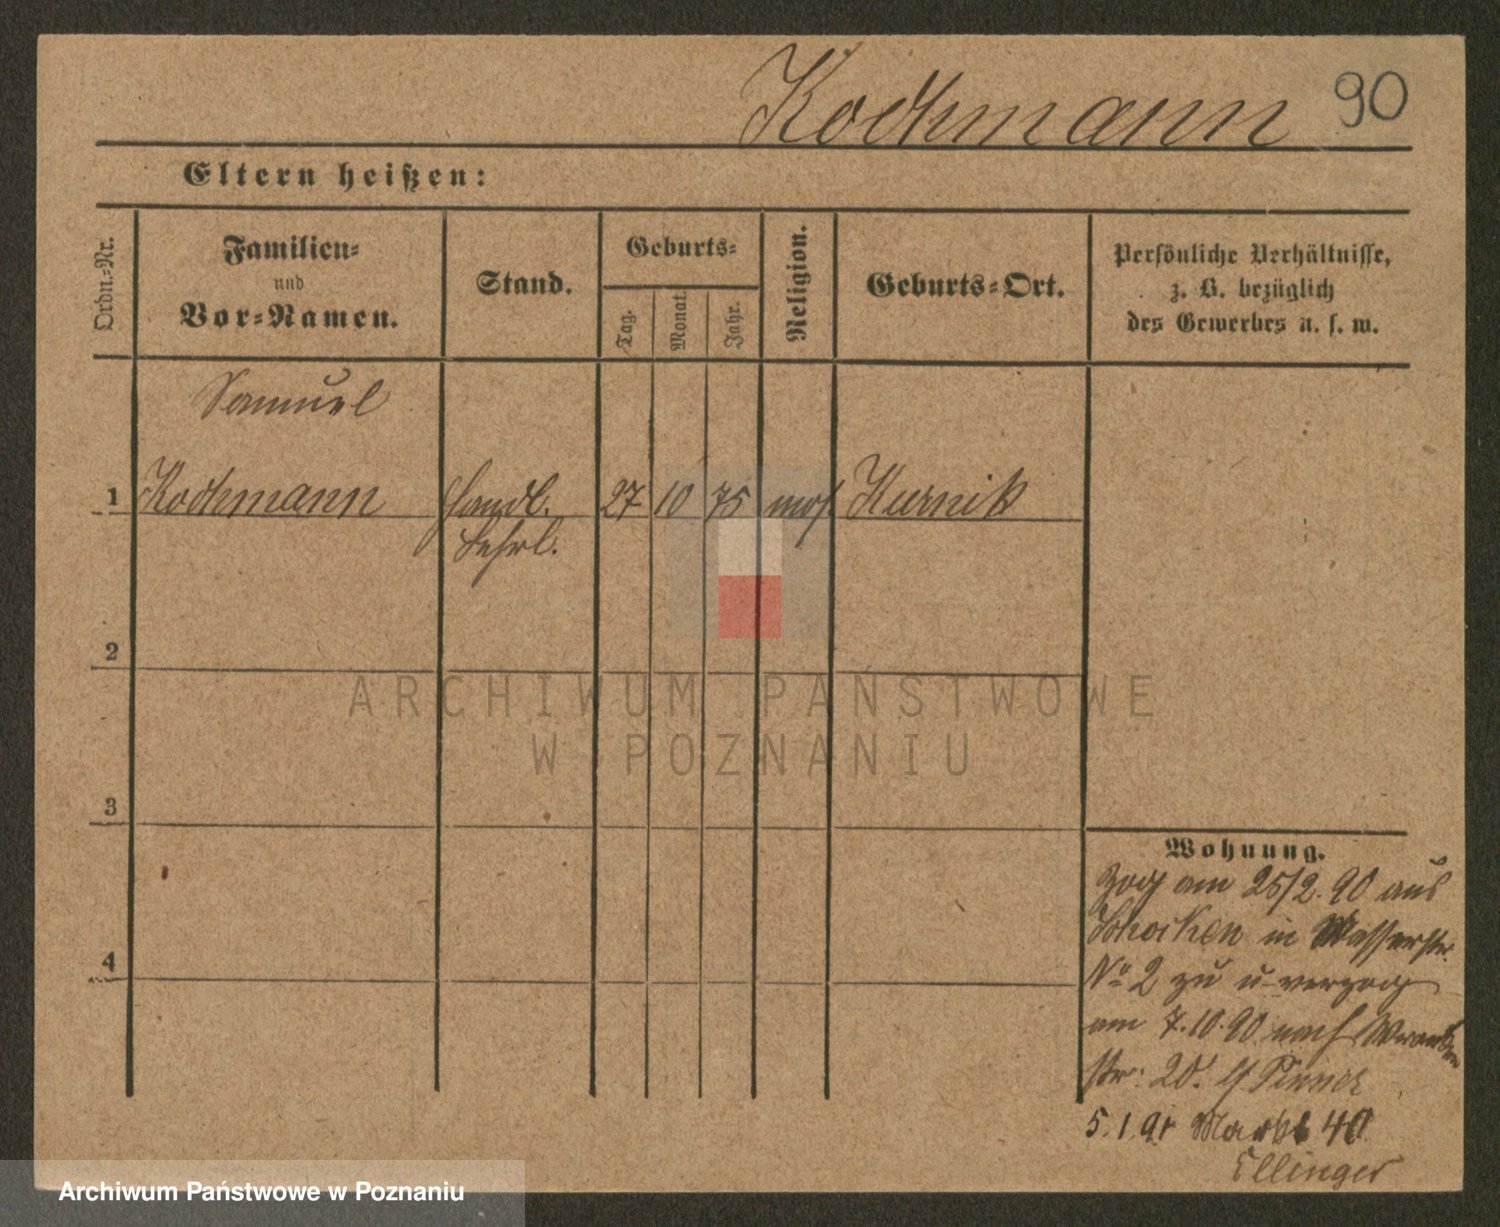 Kochmann 90
Eltern heißen:
Ordn.-Nr.
Familien-
und
Vor-Namen.
Stand.
Geburts-
Tag.
Monat.
Jahr.
Religion.
Geburts-Ort.
Persönliche Verhältnisse,
z. B. bezüglich
des Gewerbes u. s. w.
Samuel
1 Kochmann Handl. 27 10 75 mos. Kurnik
Lehrl.
2
3
4
Wohnung.
zog am 25/2. 90 aus
Schocken in Wasserstr.
No 2 zu u verzog
am 7.10.90 nach
str. 20.
5.1.91 Markt 40
Ellinger
ARCHIWUM PAŃSTWOWE
W POZNANIU
Archiwum Państwowe w Poznaniu